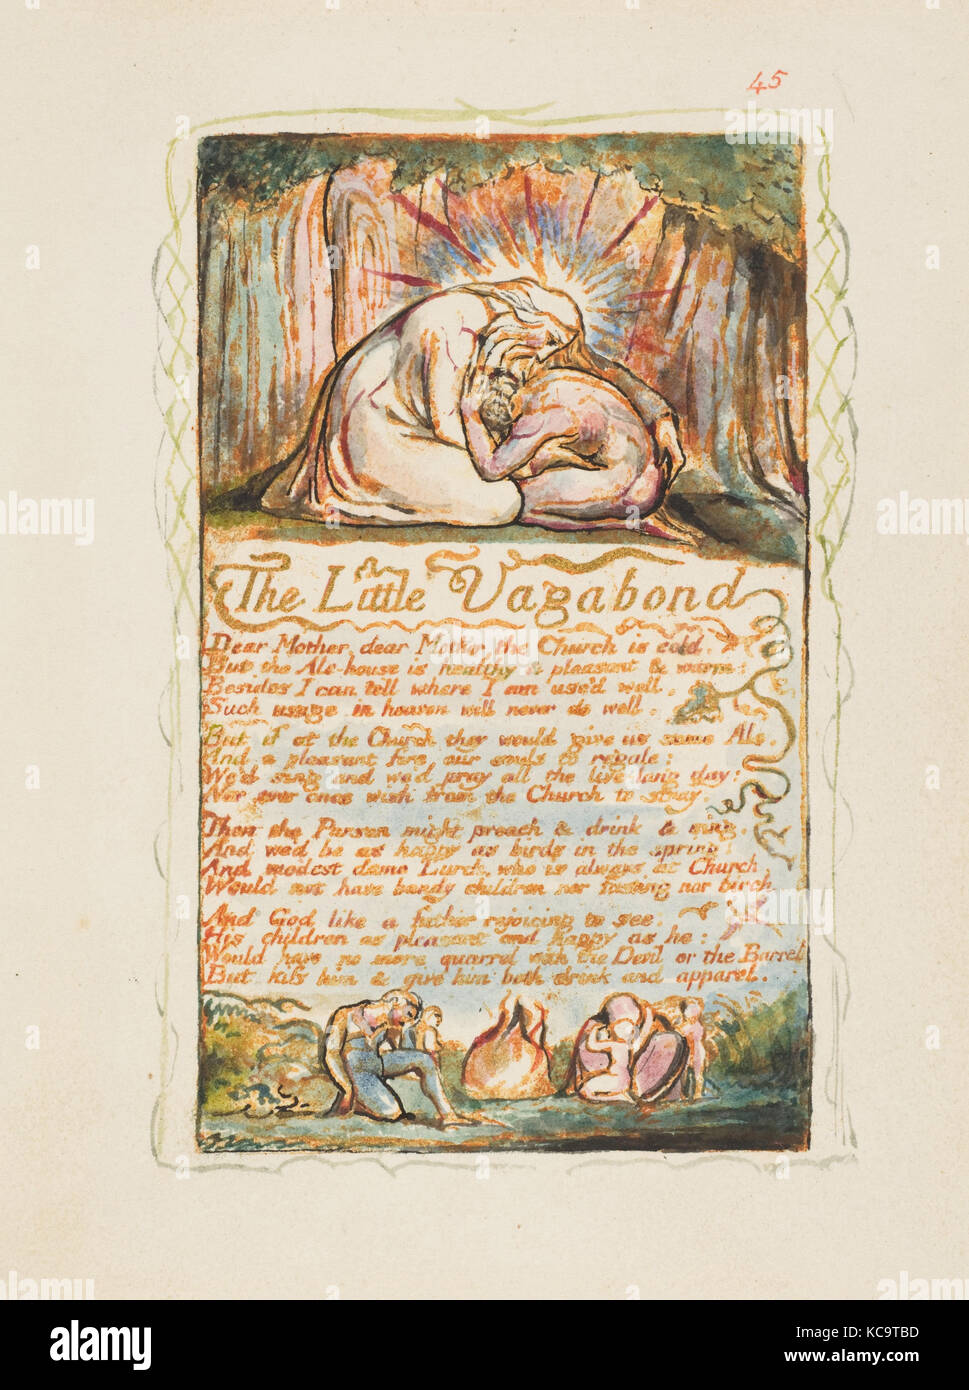 45
The Little Vagabond
Dear Mother, dear Mother, the Church is cold.
But the Ale-house is healthy & pleasant & warm:
Besides I can tell where I am use'd well.
Such usage in heaven will never do well.
But if at the Church they would give us some Ale.
And a pleasant fire, our souls to regale:
We'd sing and we'd pray all the live-long day:
Nor ever once wish from the Church to stray.
Then the Parson might preach & drink & sing.
And we'd be as happy as birds in the spring:
And modest dame Lurch, who is always at Church,
Would not have bandy children nor fasting nor birch
And God like a father rejoicing to see.
His children as pleasant and happy as he:
Would have no more quarrel with the Devil or the Barrel
But kiss him & give him both drink and apparel.
a alamy stock photo
KC9TBD
www.alamy.com